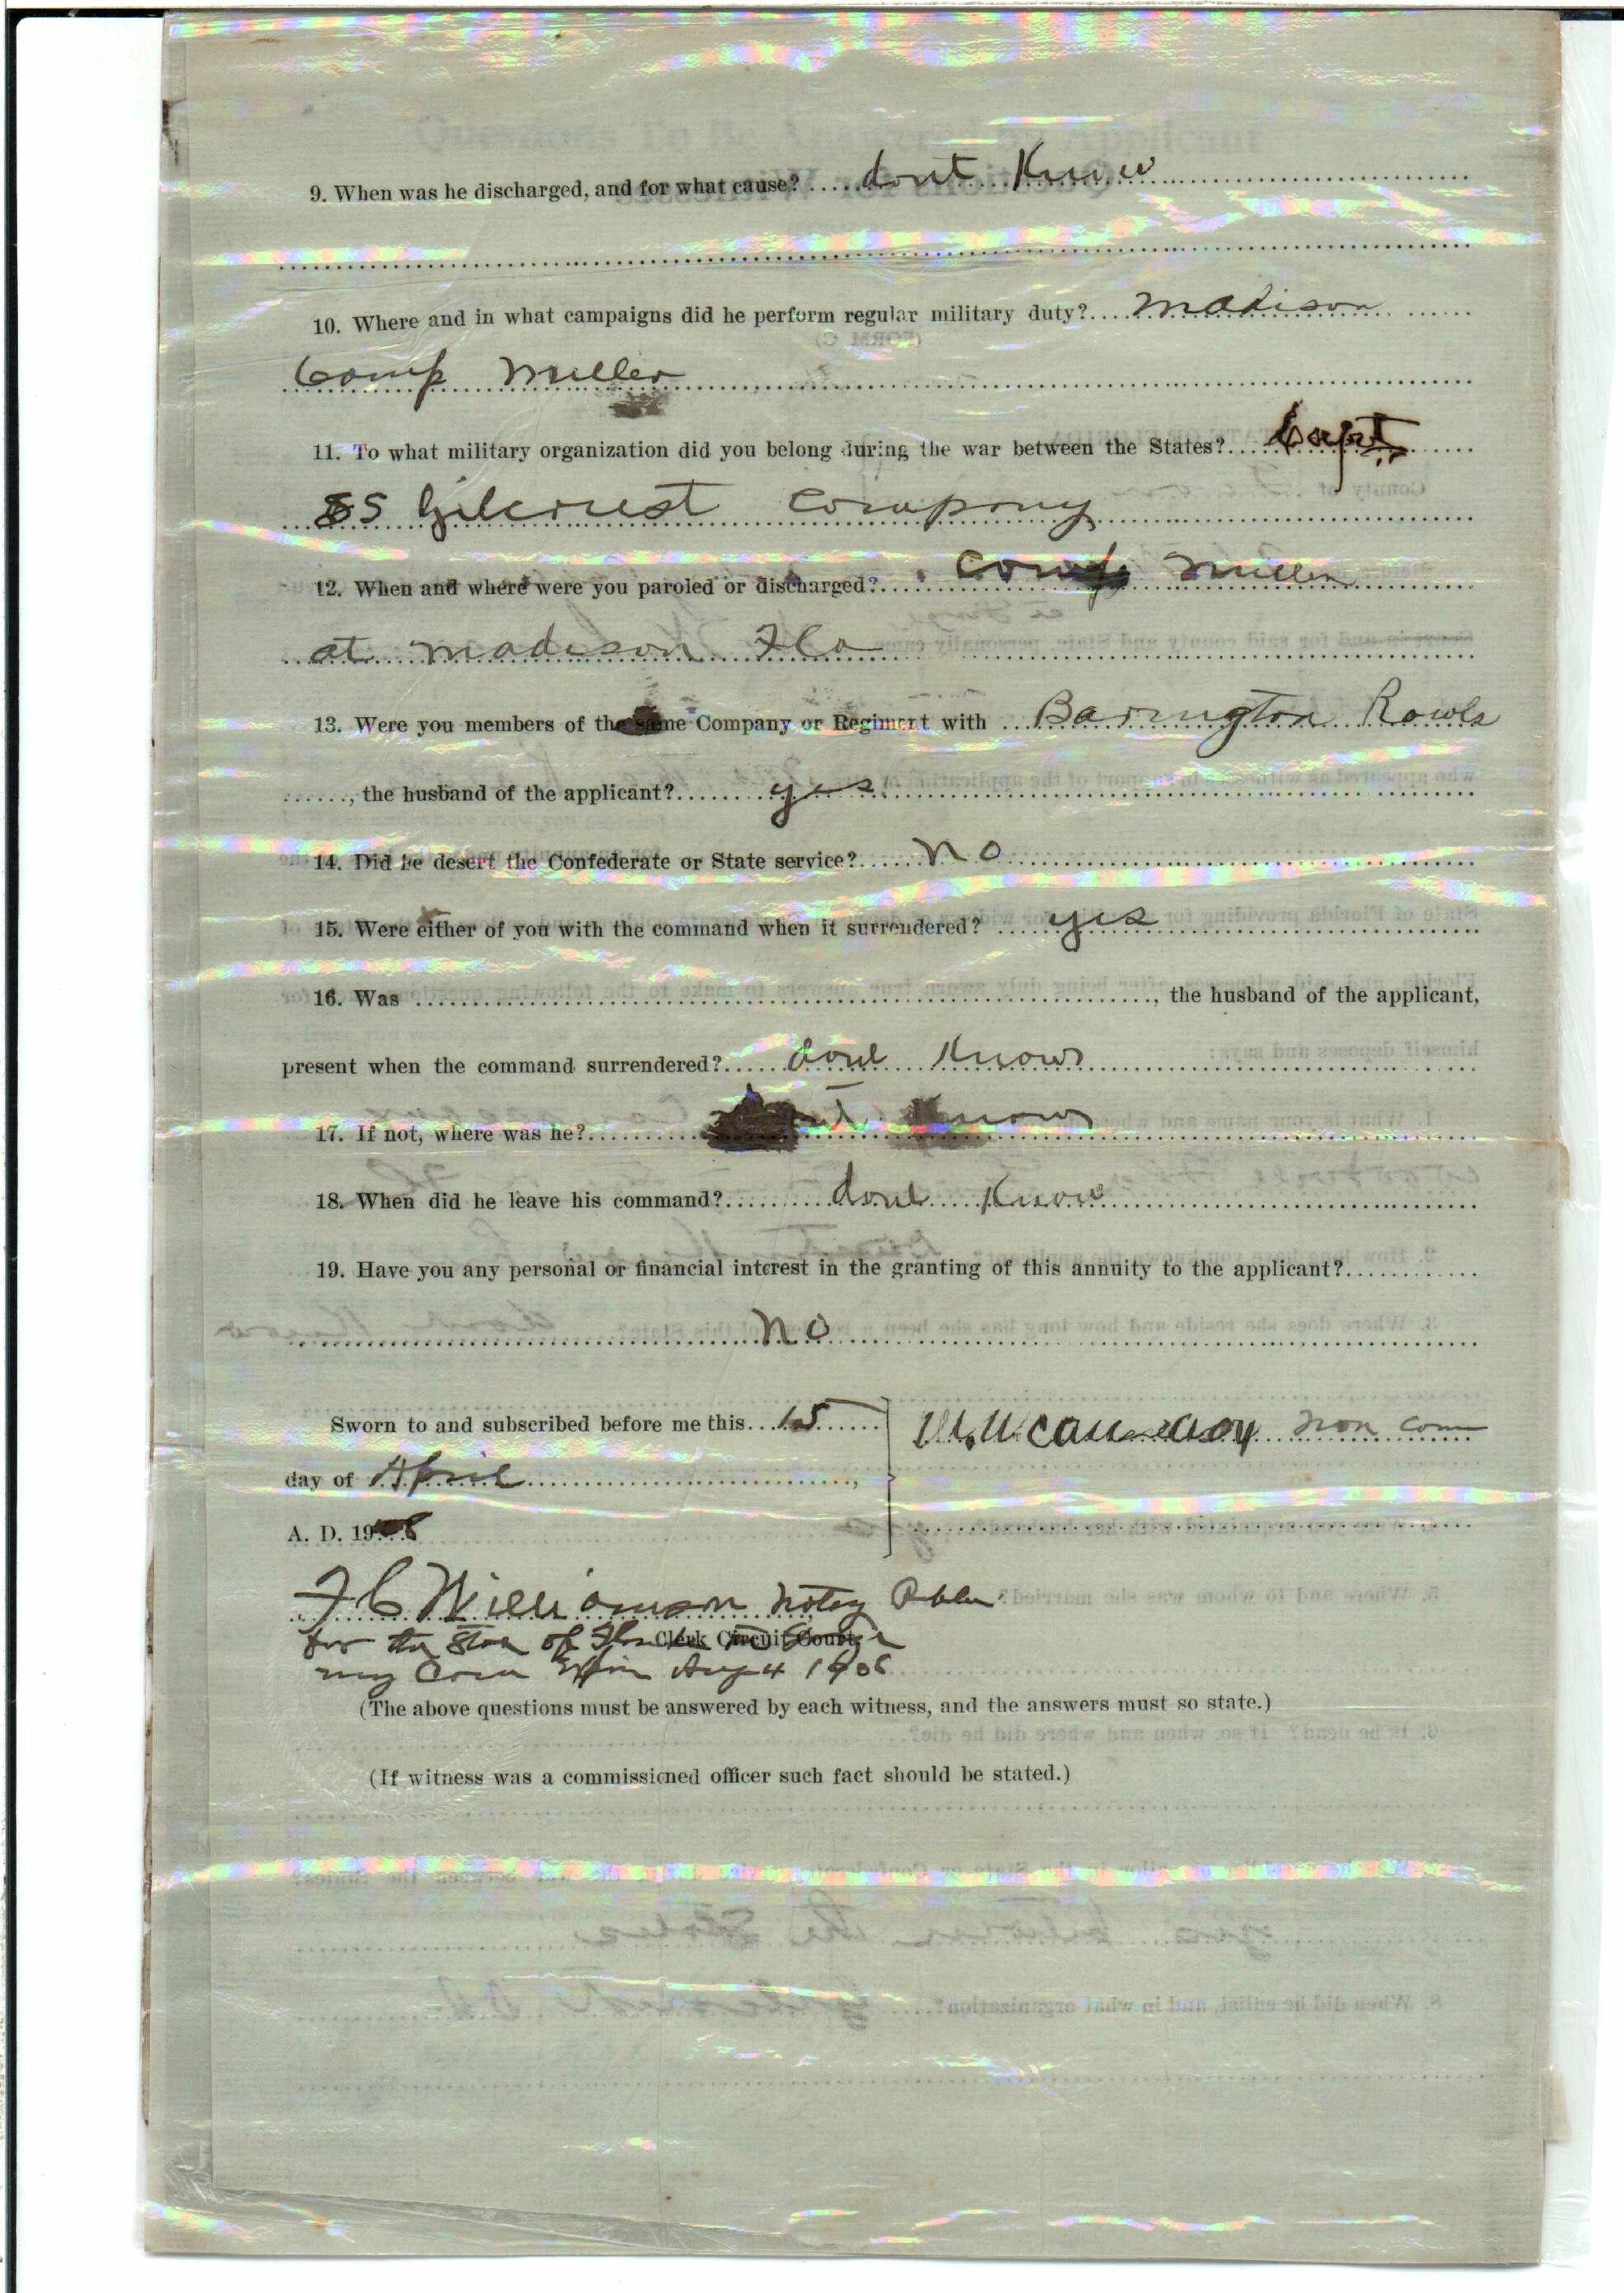 9. When was he discharged, and for what cause? dont Know
10. Where and in what campaigns did he perform regular military duty? Madison
Comp Miller
11. To what military organization did you belong during the war between the States? Capt
SS Gilcrest Company
12. When and where were you paroled or discharged? Comp Miller
at Madison Fla
13. Were you members of the same Company or Regiment with Barrington Rowls
, the husband of the applicant? yes
14. Did he desert the Confederate or State service? No
15. Were either of you with the command when it surrendered? yes
16. Was , the husband of the applicant,
present when the command surrendered? dont Know
17. If not, where was he? Know
18. When did he leave his command? dont Know
19. Have you any personal or financial interest in the granting of this annuity to the applicant?
No
Sworn to and subscribed before me this 15
non com
day of April ,
A. D. 19
F C Williamson Notary Public
for the State of Clerk Circuit Court.
my Com Aug 4 1906
(The above questions must be answered by each witness, and the answers must so state.)
(If witness was a commissioned officer such fact should be stated.)